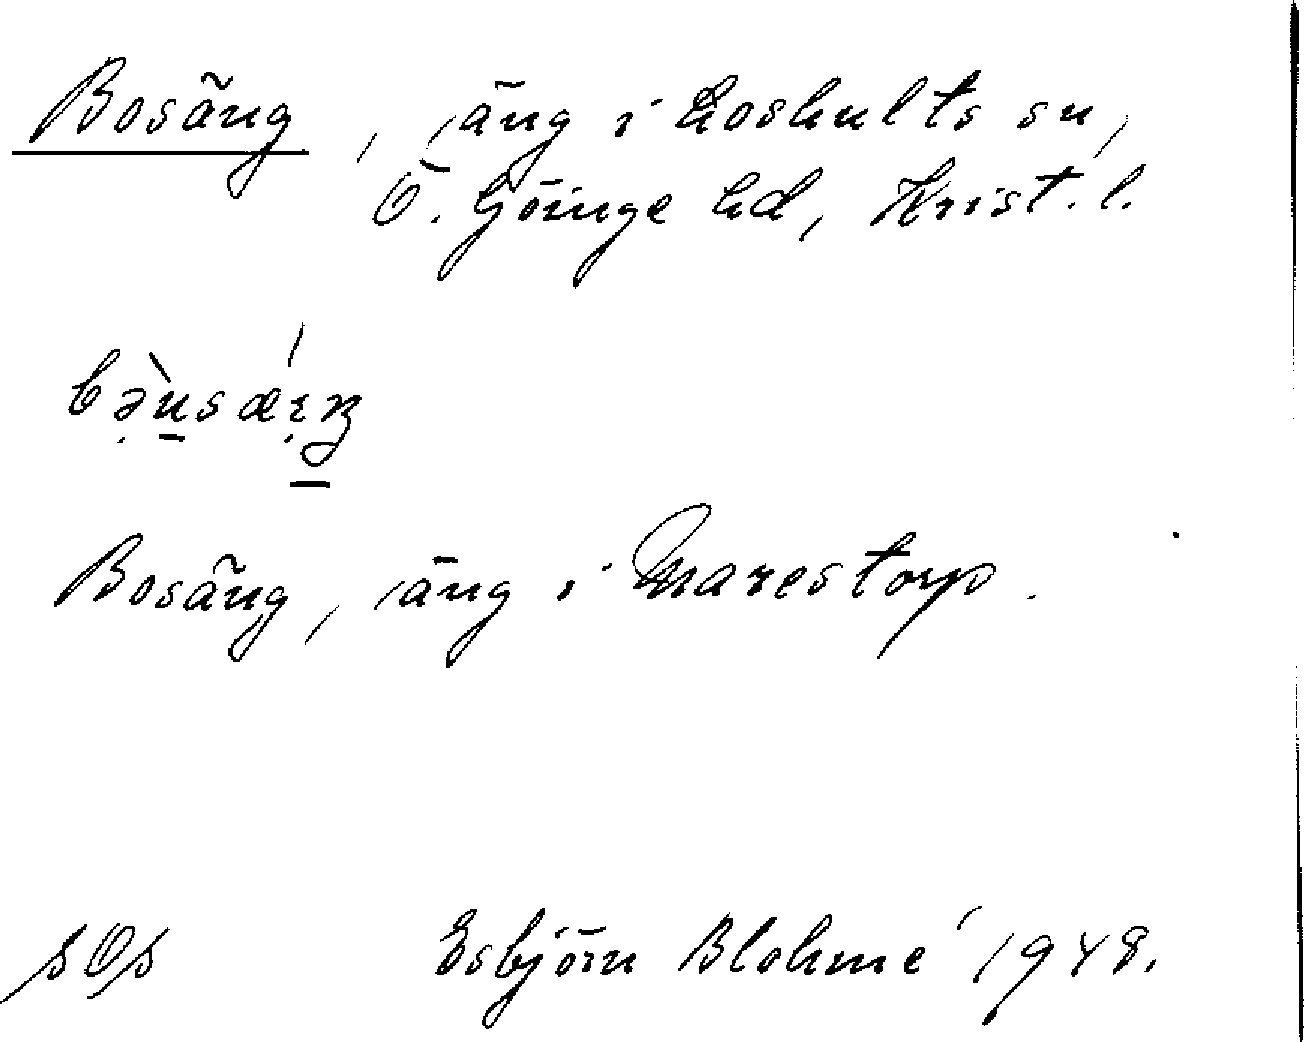 Bosäng, äng i Loshults sn,
Ö. Göinge hd, Krist. l.
Bosäng, äng i Marestorp.
sOs Esbjörn Blohmé 1948.